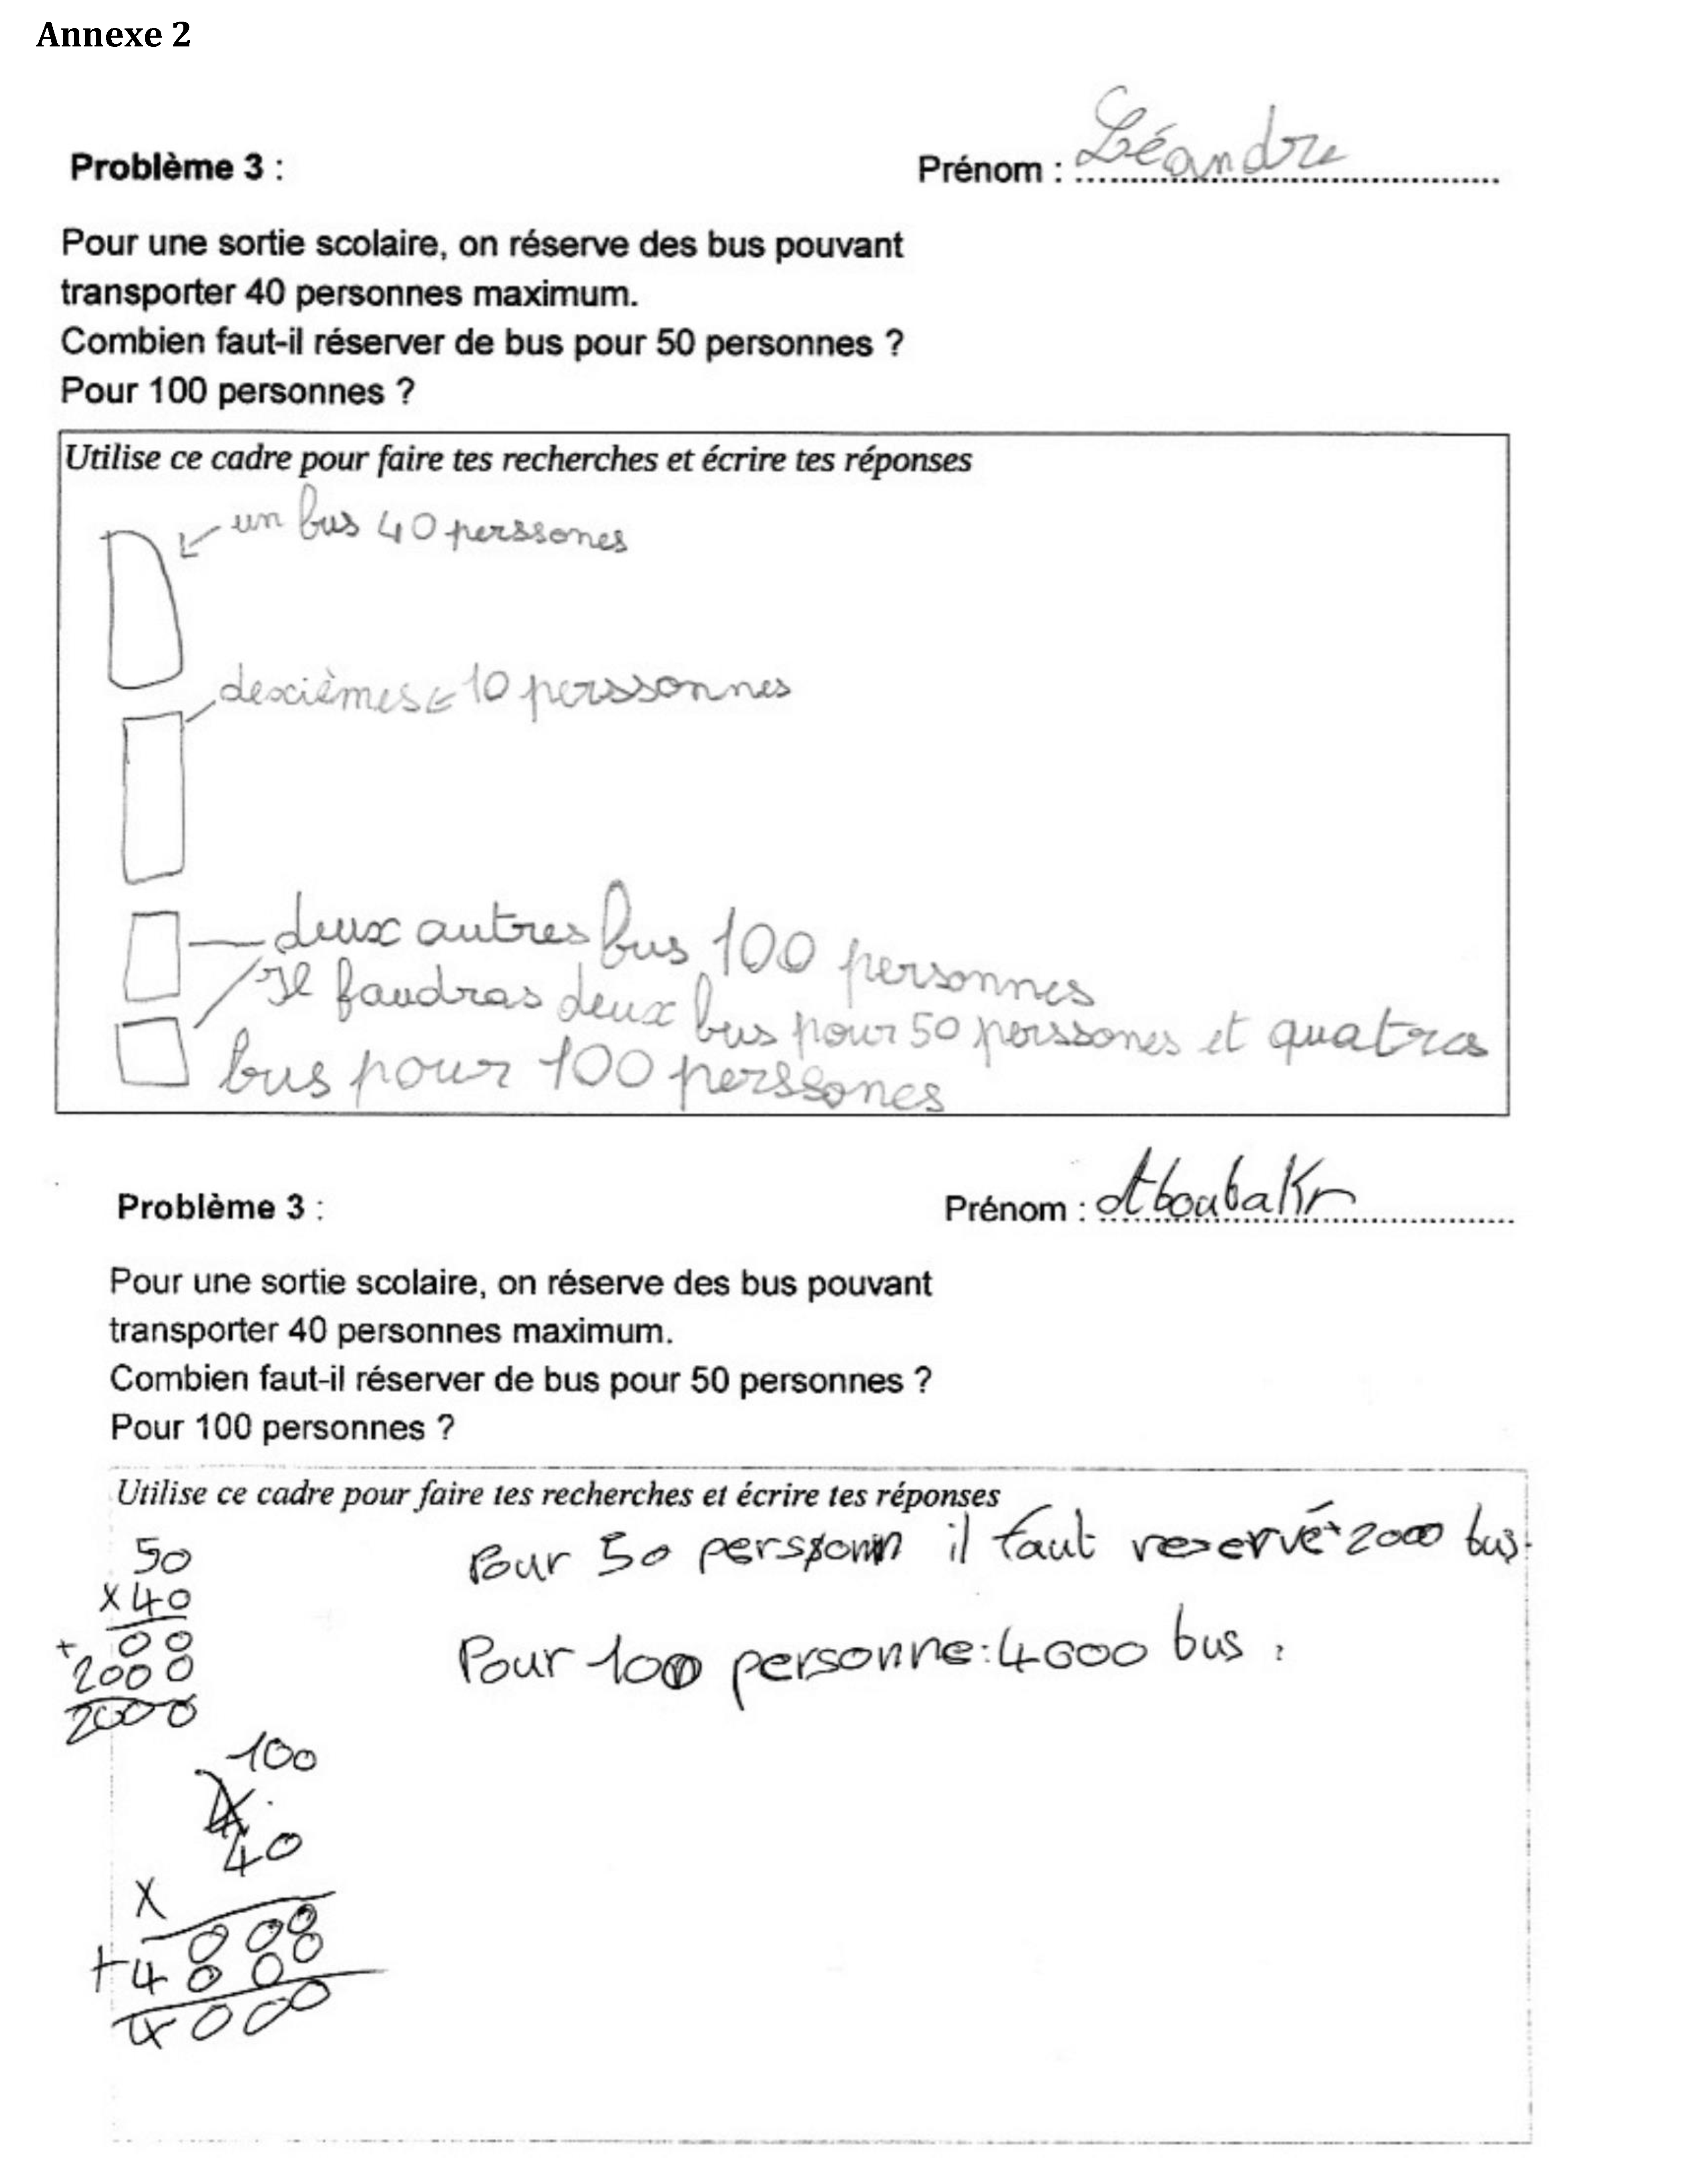 Annexe 2
Problème 3 :
Prénom : Léandre
Pour une sortie scolaire, on réserve des bus pouvant
transporter 40 personnes maximum.
Combien faut-il réserver de bus pour 50 personnes ?
Pour 100 personnes ?
Utilise ce cadre pour faire tes recherches et écrire tes réponses
un bus 40 perssones
dexièmes 10 perssonnes
deux autres bus 100 personnes
Il faudras deux bus pour 50 perssones et quatres
bus pour 100 perssones
Problème 3 :
Prénom : Aboubakr
Pour une sortie scolaire, on réserve des bus pouvant
transporter 40 personnes maximum.
Combien faut-il réserver de bus pour 50 personnes ?
Pour 100 personnes ?
Utilise ce cadre pour faire tes recherches et écrire tes réponses
50
x 40
+ 00
2000
2000
Pour 50 il faut reservé 2000 bus.
Pour 100 personne : 4000 bus
100
40
x
000
+ 4000
4000